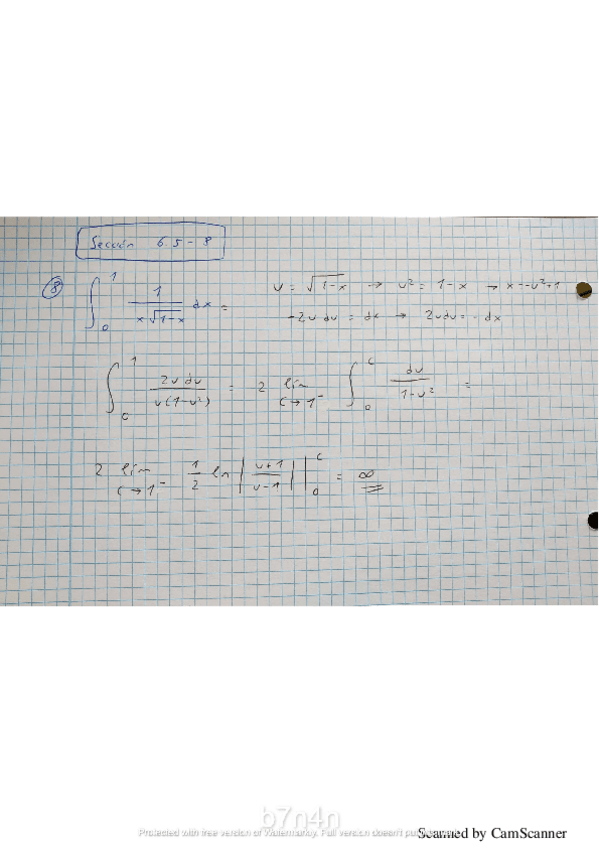 Sección 6.5-8
⑧ ∫₀¹ 1/(x√(1-x)) dx = u = √(1-x) → u² = 1-x → x = -u²+1
-2u du = dx → 2u du = - dx
∫₀¹ 2u du/(u(1-u²)) = 2 lim c→1⁻ ∫₀ᶜ du/(1-u²) =
2 lim c→1⁻ 1/2 ln |(u+1)/(u-1)| |₀ᶜ = ∞
b7n4n
Protected with free version of Watermarkly. Full version doesn't put
Scanned by CamScanner